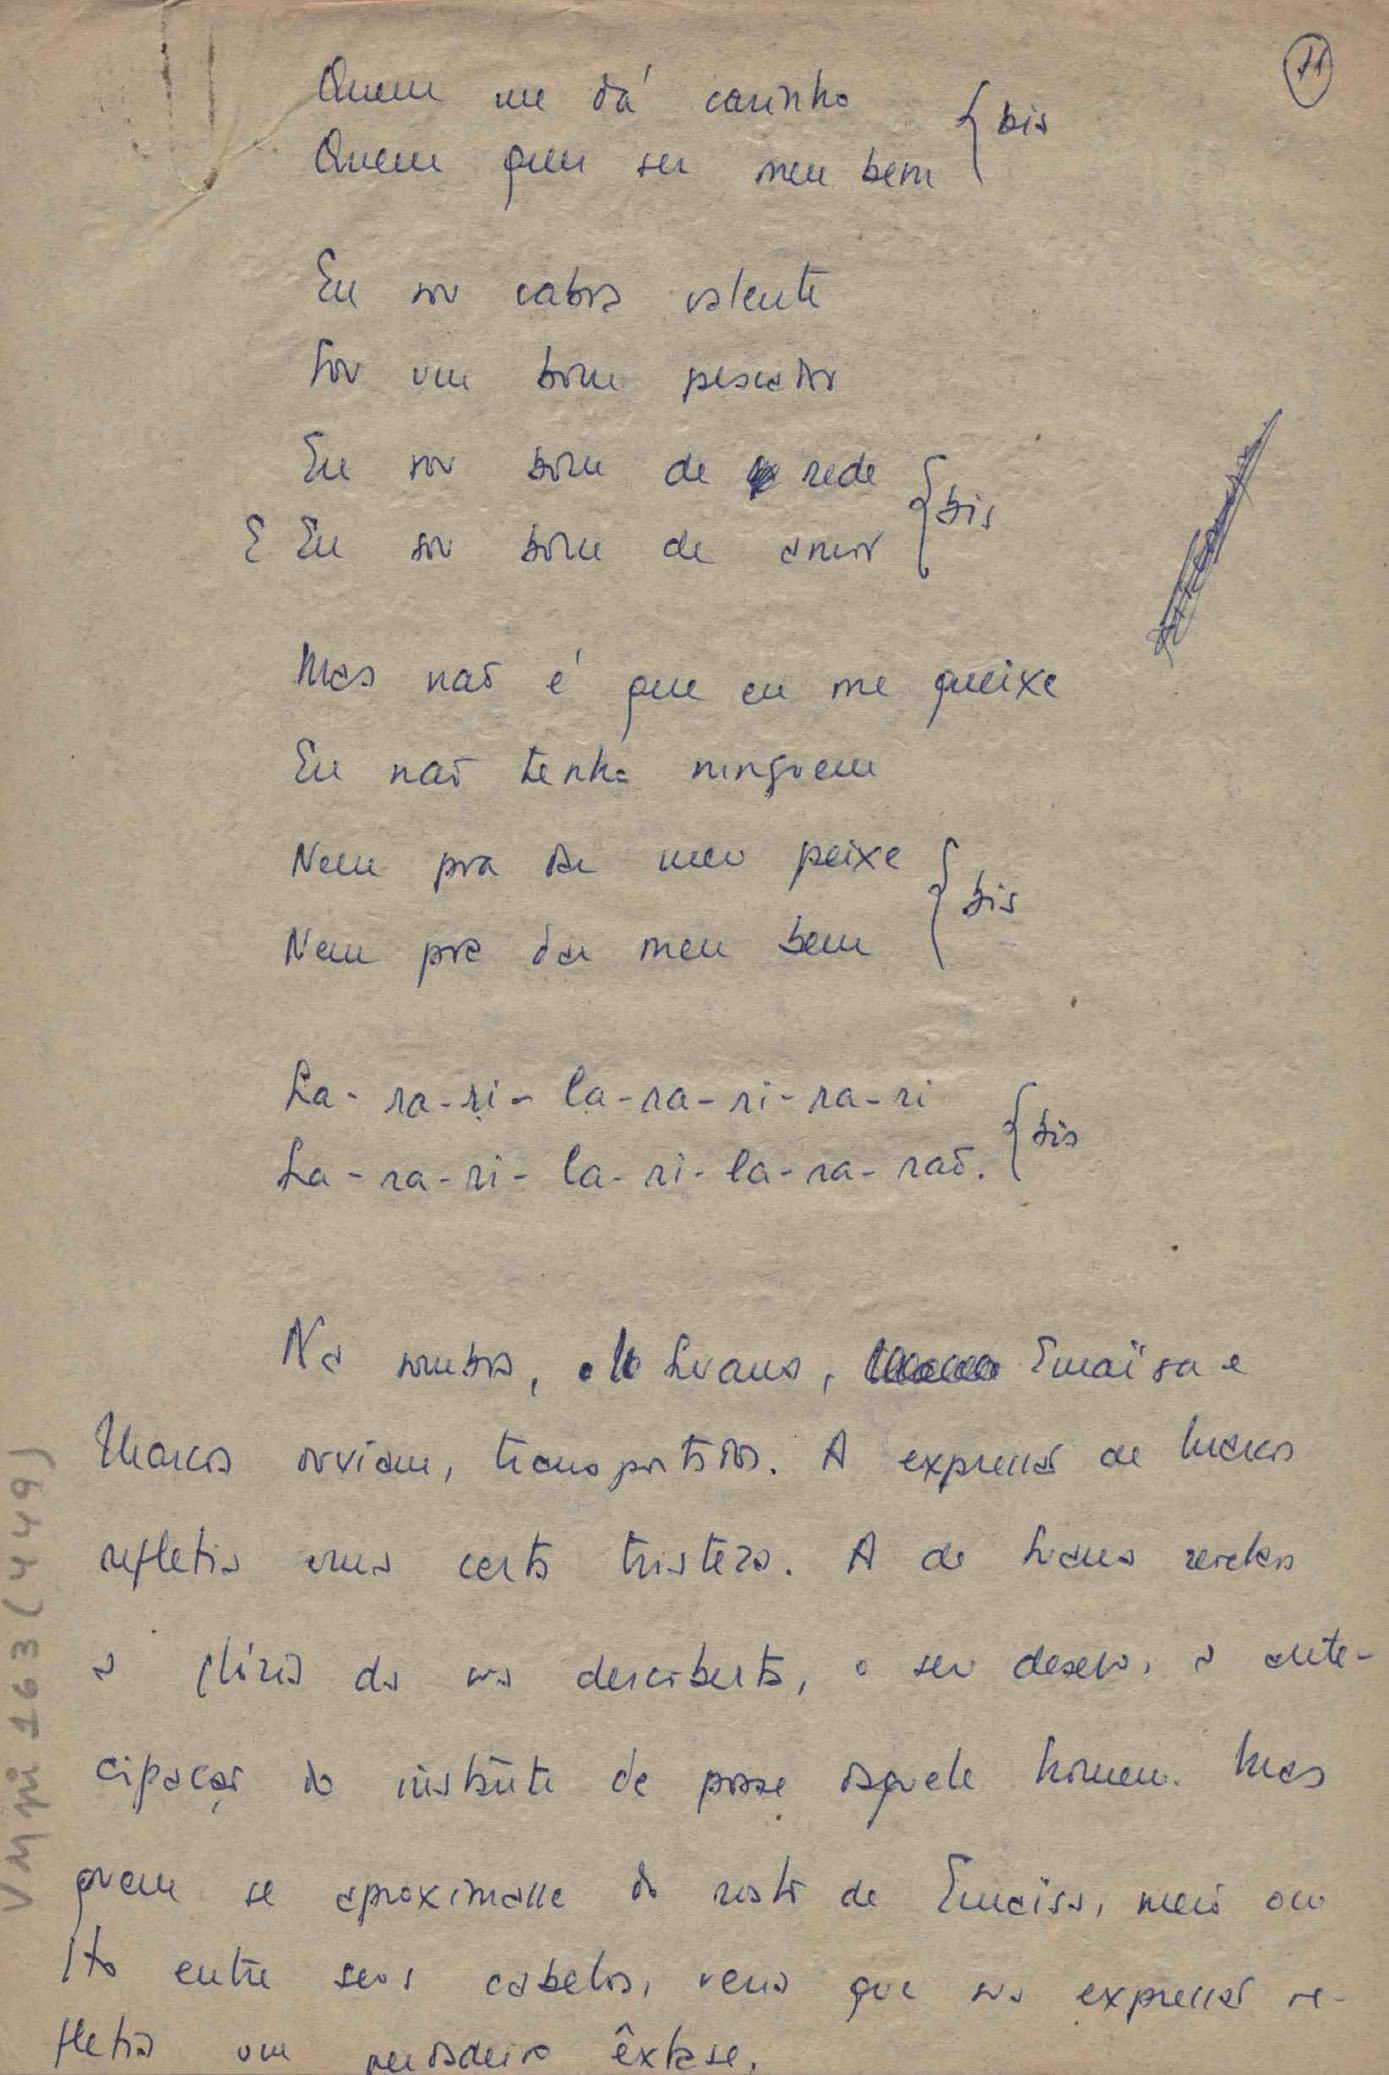 11
Quem me dá carinho
Quem quer ser meu bem } bis
Eu sou cabra valente
Sou um bom pescador
Eu sou bom de rede
E Eu sou bom de amor } bis
Mas não é que eu me queixe
Eu não tenho ninguem
Nem pra dar meu peixe
Nem pra dar meu bem } bis
La-ra-ri-la-ra-ri-ra-ri
La-ra-ri-la-ri-la-ra-raõ. } bis
Na sombra, Luana, Emaïsa e
Marcos ouviam, transportados. A expressão de Marcos
refletia uma certa tristeza. A de Luana revelava
a glória da sua descoberta, o seu desejo, a ante-
cipação do instante de posse daquele homem. Mas
quem se aproximasse do rosto de Emaïsa, meio ocu
lto entre seus cabelos, veria que sua expressão re-
fletia um verdadeiro êxtase.
VMpi163(449)